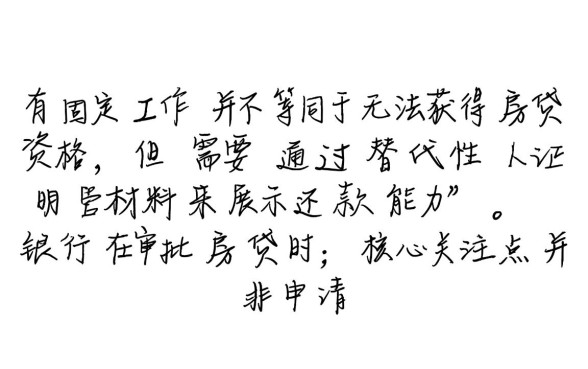 有固定工作 并不等同于无法获得房贷
资格， 但 需要 通过 替代性 人证
明 材料来展示还款能力” 。
银行在审批房贷时； 核心关注点并
非申请